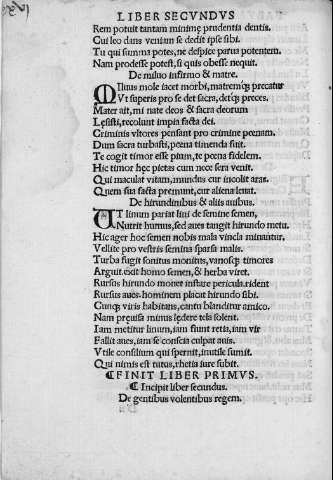 LIBER SECVNDVS
Rem potuit tantam minimę prudentia dentis.
Cui leo dans veniam se dedit ipse sibi.
Tu qui summa potes, ne despice parua potentem.
Nam prodesse potest, si quis obesse nequit.
De miluo infirmo & matre.
MIluus mole iacet morbi, matremq; precatur
Vt superis pro se det sacra, detq; preces.
Mater ait, mi nate deos & sacra deorum
Lęsisti, recolunt impia facta dei.
Criminis vltores pensant pro crimine pœnam.
Dum sacra turbasti, pœna timenda fuit.
Te cogit timor esse pium, te pœna fidelem.
Hic timor hęc pietas cum nece sera venit.
Qui maculat vitam, mundus cur incolit aras.
Quem sua facta premunt, cur aliena leuat.
De hirundinibus & aliis auibus.
VT linum pariat lini de semine semen,
Nutrit humus, sed aues tangit hirundo metu.
Hic ager hoc semen nobis mala vincla minantur,
Vellite pro vestris semina sparsa malis.
Turba fugit sonitus monitus, vanosq; timores
Arguit. exit homo semen, & herba viret.
Rursus hirundo monet instare pericula. rident
Rursus aues. hominem placat hirundo sibi.
Cunq; viris habitans, cantu blanditur amico.
Nam pręuisa minus lędere tela solent.
Iam metitur linum, iam fiunt retia, iam vir
Fallit aues, iam se conscia culpat auis.
Vtile consilium qui spernit, inutile sumit.
Qui nimis est tutus, rhetia iure subit.
¶FINIT LIBER PRIMVS.
¶ Incipit liber secundus.
De gentibus volentibus regem.